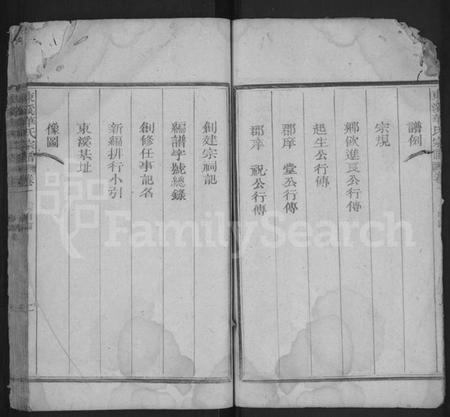 譜例
宗規
鄉飲進良公行傳
起生公行傳
郡庠 堂公行傳
郡庠 祝公行傳
創建宗祠記
編譜字號總錄
創修任事記名
新編排行小引
東溪基址
像圖
FamilySearch